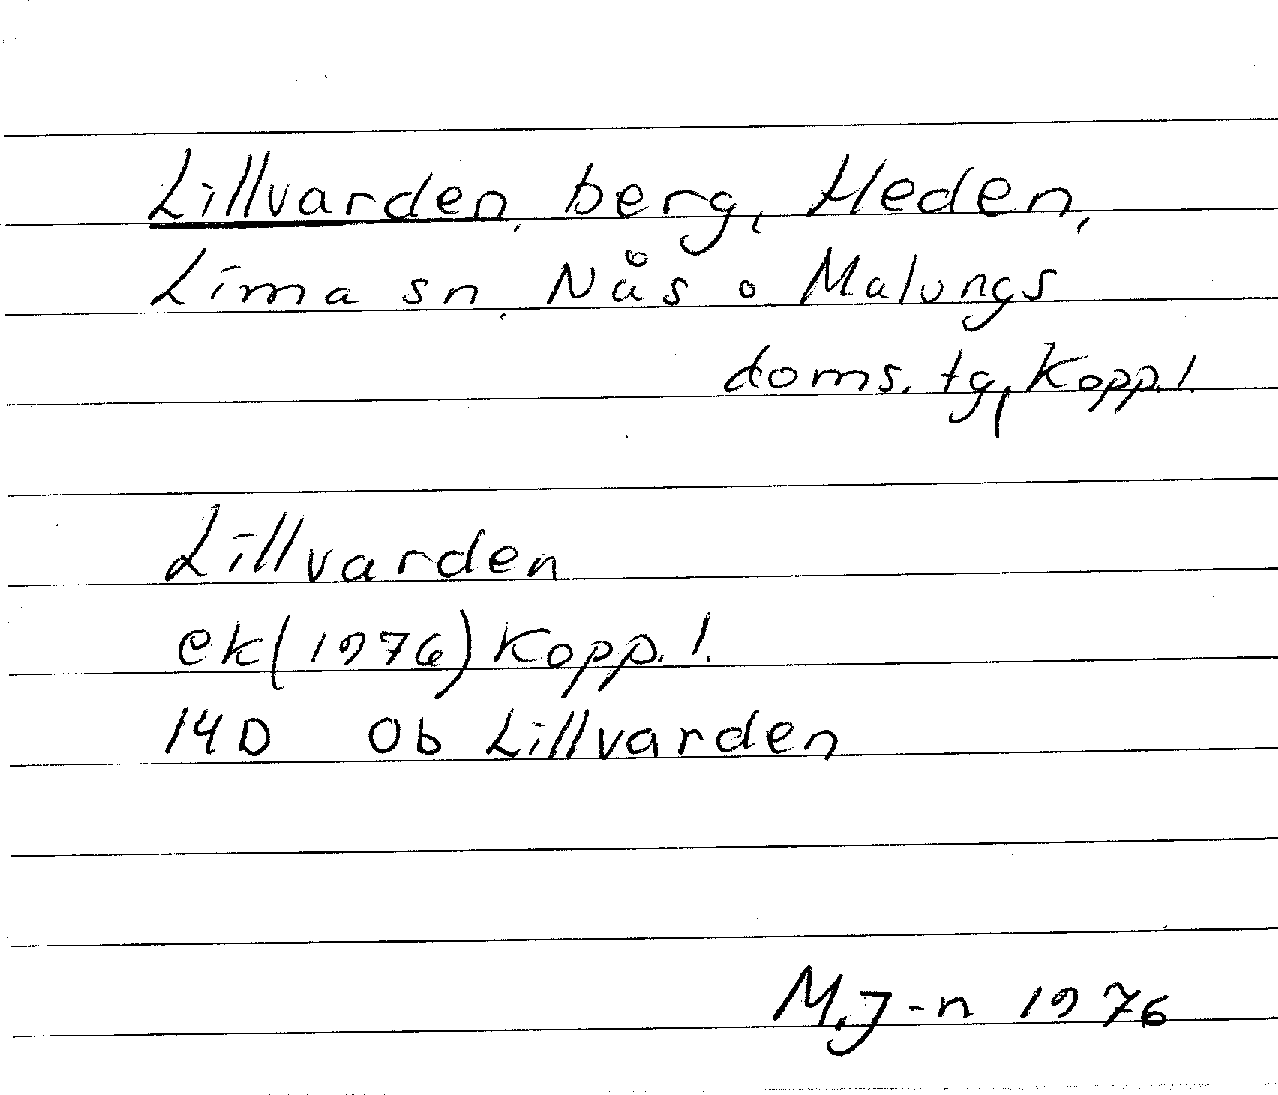 Lillvarden, berg, Heden,
Lima sn, Nås o Malungs
doms. tg, Kopp. l.
Lillvarden
ek (1976) Kopp. l.
14D 0b Lillvarden
M.J-n 1976